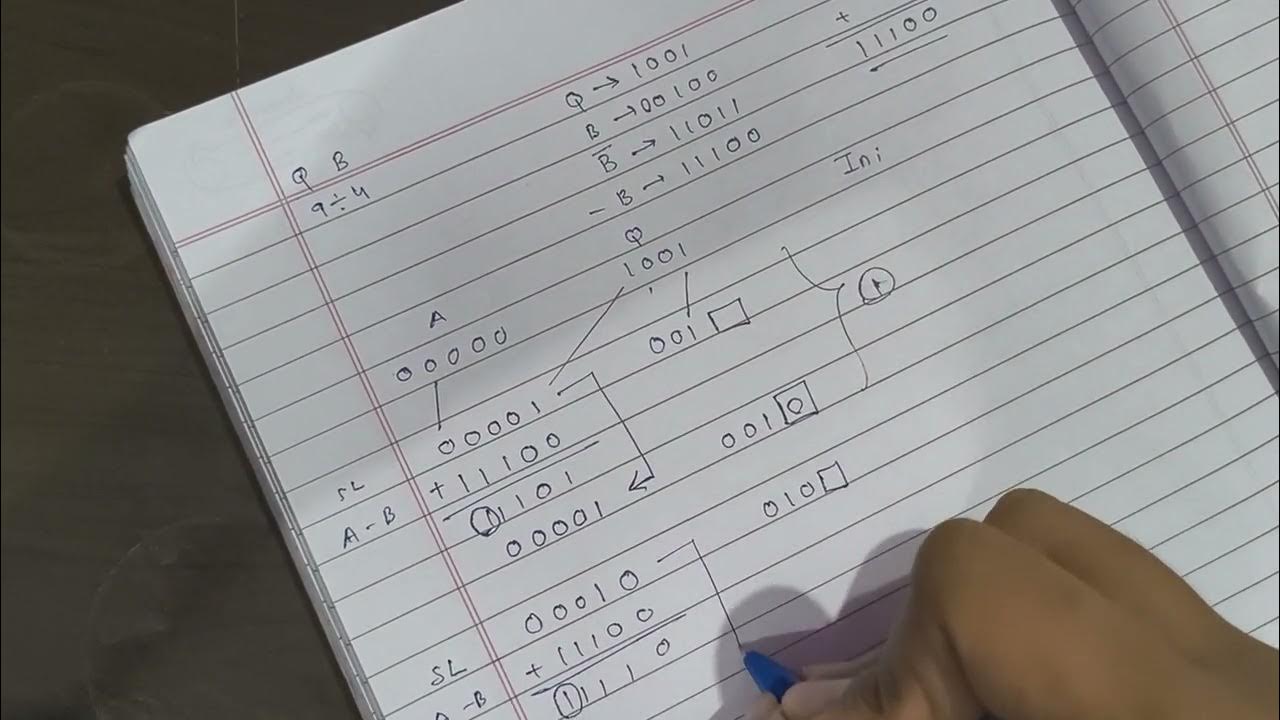 +
11100
Q → 1001
B → 00100
B̅ → 11011
- B → 11100
Q B
9÷4
Ini
A Q
00000 1001
SL 00001 001□
A - B + 11100
11101 001 0
00001
1
SL 00010 010□
A - B + 11100
11110